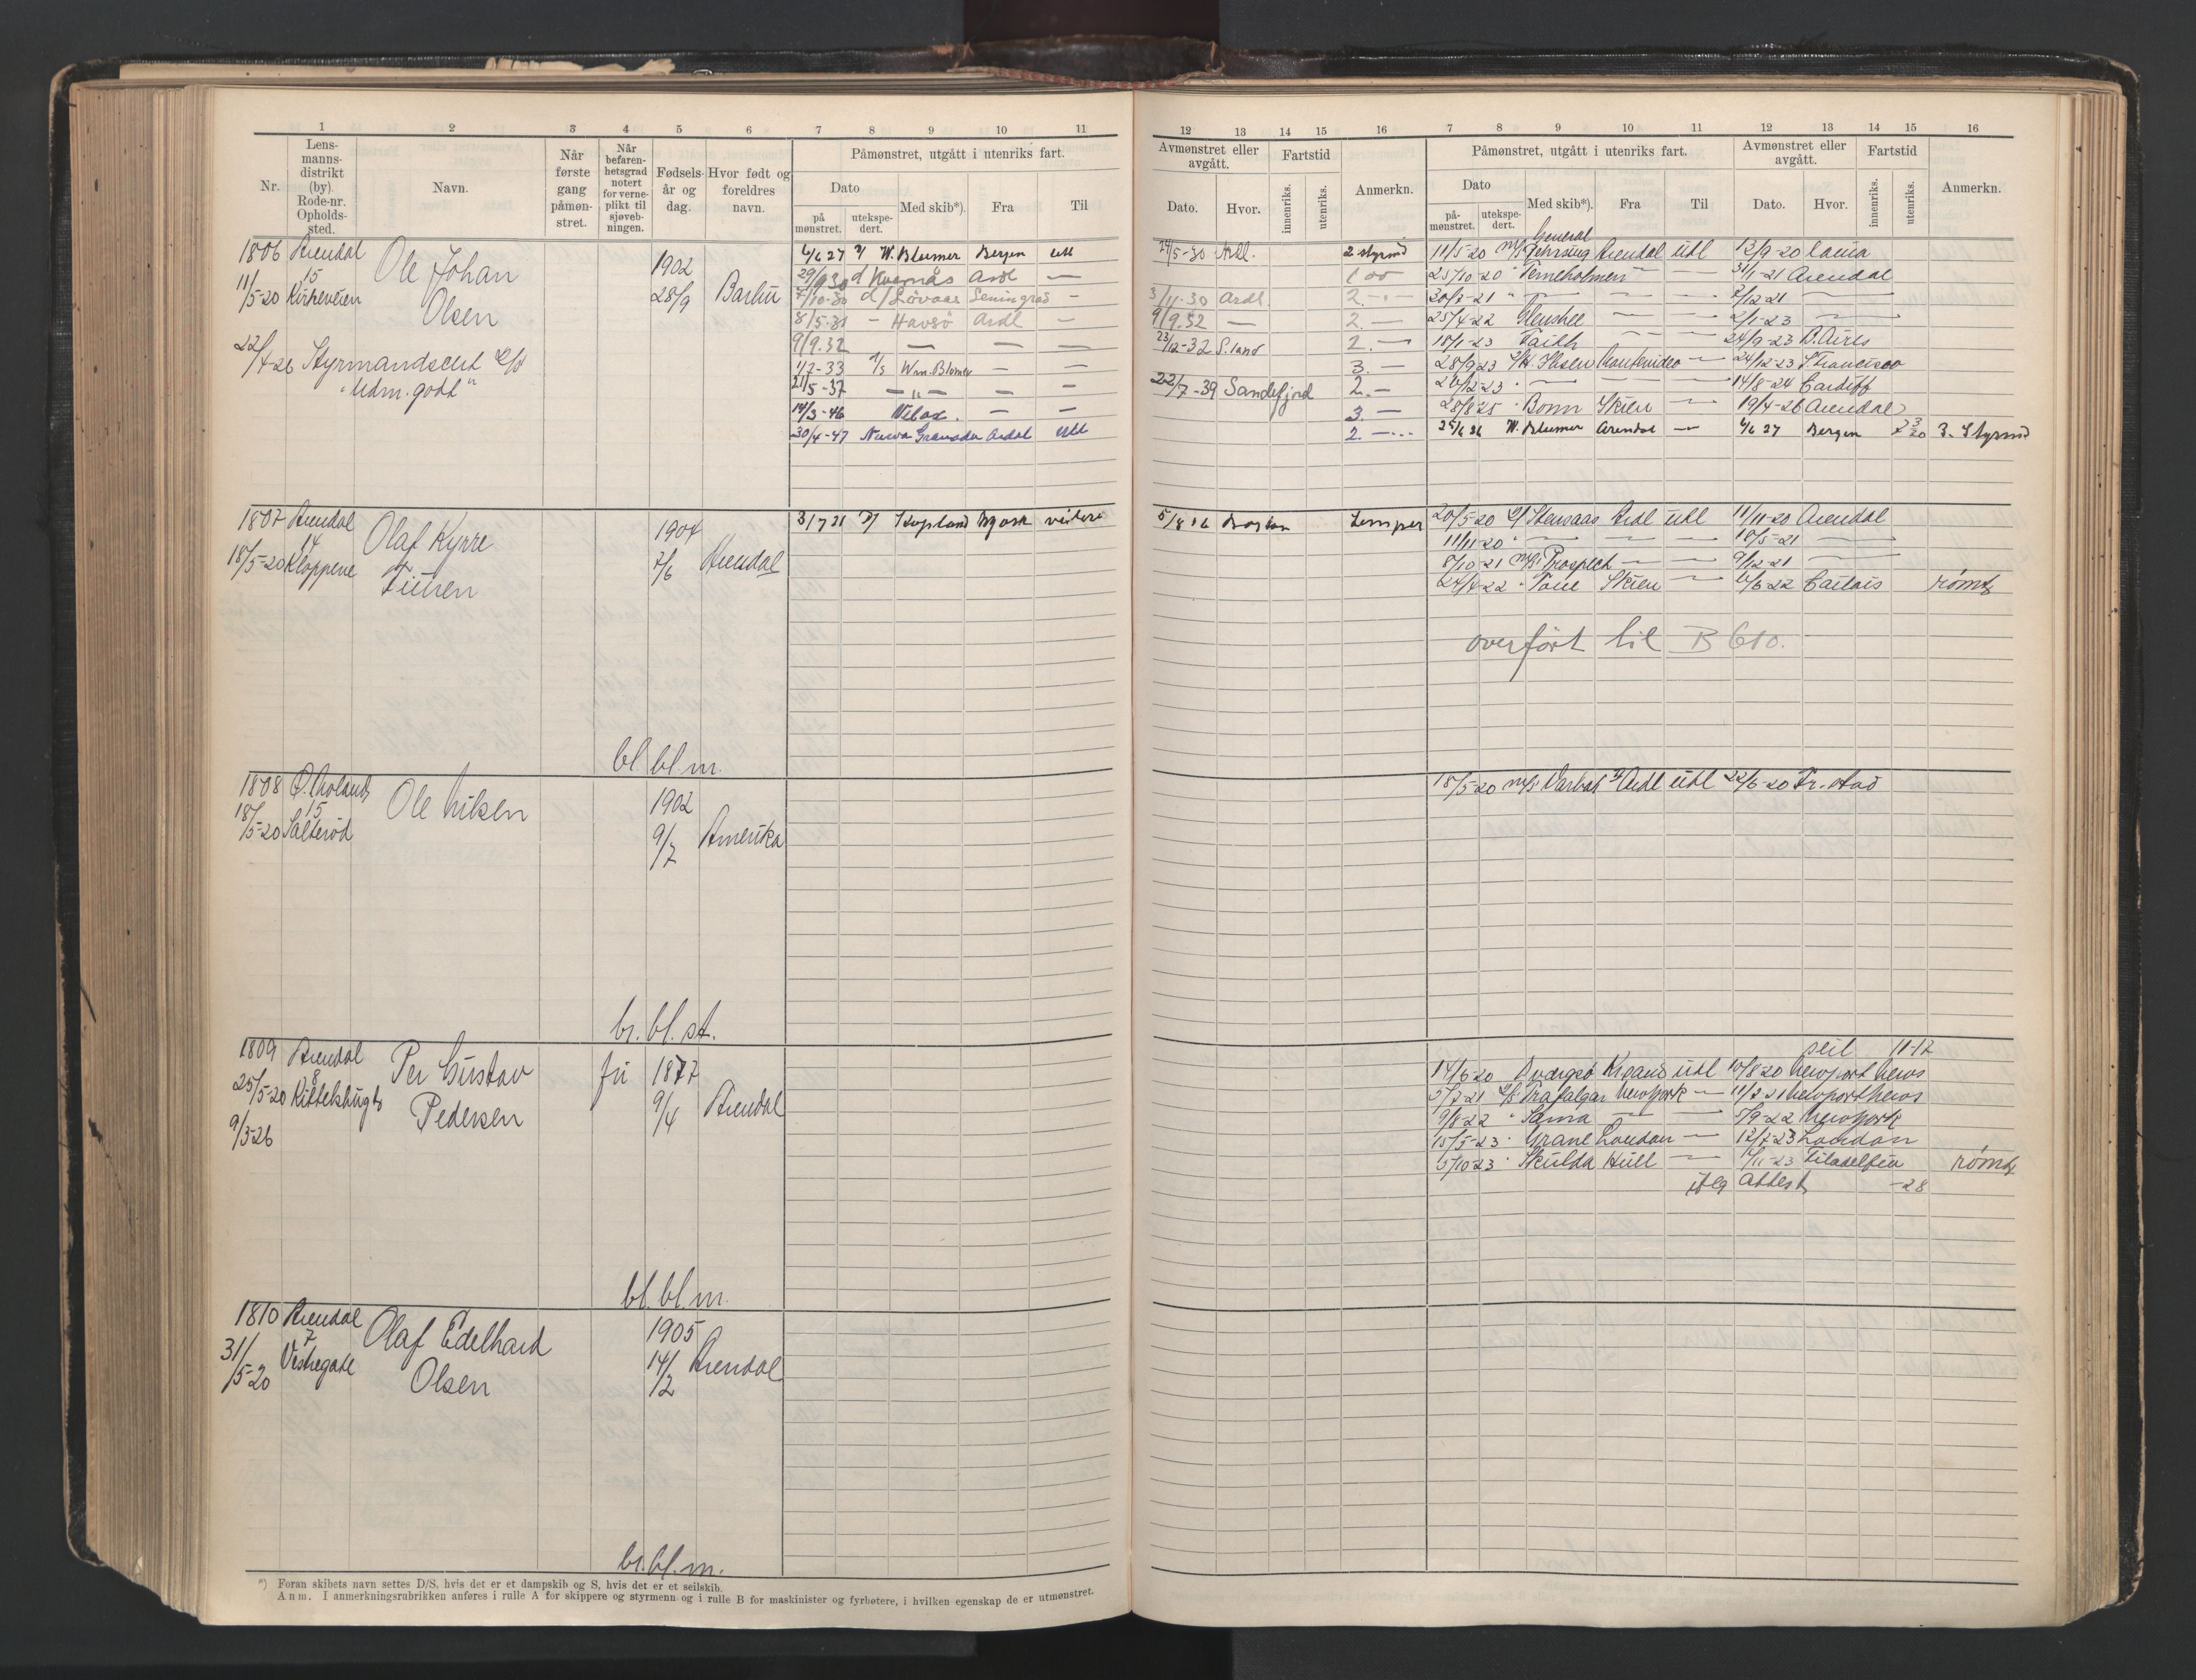 1 2 3 4 5 6 7 8 9 10 11
Nr. Lensmanns-distrikt (by). Rode-nr. Opholds-sted. Navn. Når første gang påmøn-stret. Når befaren-hetsgrad notert for verne-plikt til sjøveb-ningen. Fødsels-år og dag. Hvor født og foreldres navn. Påmønstret, utgått i utenriks fart.
Dato på mønstret. utekspe-dert. Med skib*). Fra Til
1806 Arendal 15 Kirkeveien
11/5-20
Ole Johan
Olsen
1902
28/9 Barbu
22/4-26 Styrmandscert
"Udm. godt"
4/6 27 W. Blumer Bergen utl
29/9 30 d Kvernås Ardl —
7/10-30 d/ Løvaas Leningrad -
8/5-31 - Havsø Ardl —
9/9.32 — — —
1/2-33 Wm. Blomer — —
21/5-37 — „ — — —
14/3-46 Velox. — —
30/4-47 Nueva Granada Ardal Utl
1807 Arendal 14 Kloppene
18/5-20
Olaf Kyrre
1904
7/6 Arendal
3/7 21 videre
bl. bl. m.
1808 Ø. Moland 15 Salterød
18/5-20
Ole Nilsen
1902
9/7 Amerika
br. bl. st.
1809 Arendal 8
25/5-20
9/3-26
Per Gustav
Pedersen
1877
9/4 Arendal
bl. bl. m.
1810 Arendal 7 Vestregate
31/5-20
Olaf Edelhard
Olsen
1905
14/2 Arendal
br. bl. m.
*) Foran skibets navn settes D/S, hvis det er et dampskib og S, hvis det er et seilskib.
Anm. I anmerkningsrubrikken anføres i rulle A for skippere og styrmenn og i rulle B for maskinister og fyrbøtere, i hvilken egenskap de er utmønstret.
12 13 14 15 16 7 8 9 10 11 12 13 14 15 16
Avmønstret eller avgått. Fartstid Anmerkn. Påmønstret, utgått i utenriks fart. Avmønstret eller avgått. Fartstid Anmerkn.
Dato. Hvor. innenriks. utenriks. Dato på-mønstret. utekspe-dert. Med skib*). Fra Til Dato. Hvor. innenriks. utenriks.
General
24/5-30 Ardl. 2 styrmd 11/5-20 m/s Arendal utl 13/9-20
25/10-20 Terneholmen — — 31/1-21 Arendal
3/11-30 Ardl. 2. — 30/7-21 " — — — 7/12-21 —
9/9.32 — 2. — 25/4-22 Glenshee — — 2/1-23 —
23/12-32 S. land 2. — 18/1-23 Faith — — 24/9-23 B. Aires
3. — 28/9-23 Ibsen Montevideo — 24/12-23 S. Francisco
22/7-39 Sandefjord 2. — 26/12-23 — — — 14/8-24 Cardiff
3. — 28/8 25 Bonn Skien — 19/4-26 Arendal
2. — 25/6 26 W. Blumer Arendal — 4/6 27 Bergen 3. Styrmd
5/8 Boston Lemper 20/5-20 Stensaas Ardl utl 11/11-20 Arendal
11/11-20 " — — — 18/5-21 —
8/10-21 m/s Prospect — — 9/12-21 —
24/4-22 Skien — 6/6-22 rømt
overført til B 610.
18/5-20 m/s Ardl utl 22/6-20 Fr. stad
seil 11-17
14/6-20 Krsand utl 10/8 20 Newport News
5/7-21 Trafalgar Newyork — 11/7 21 Newport News
9/8-22 " — — 5/9-22 Newyork
15/5-23 Grane London — 12/7-23 London
5/10-23 Skulda Hull — Filadelfia rømt
Attest -28